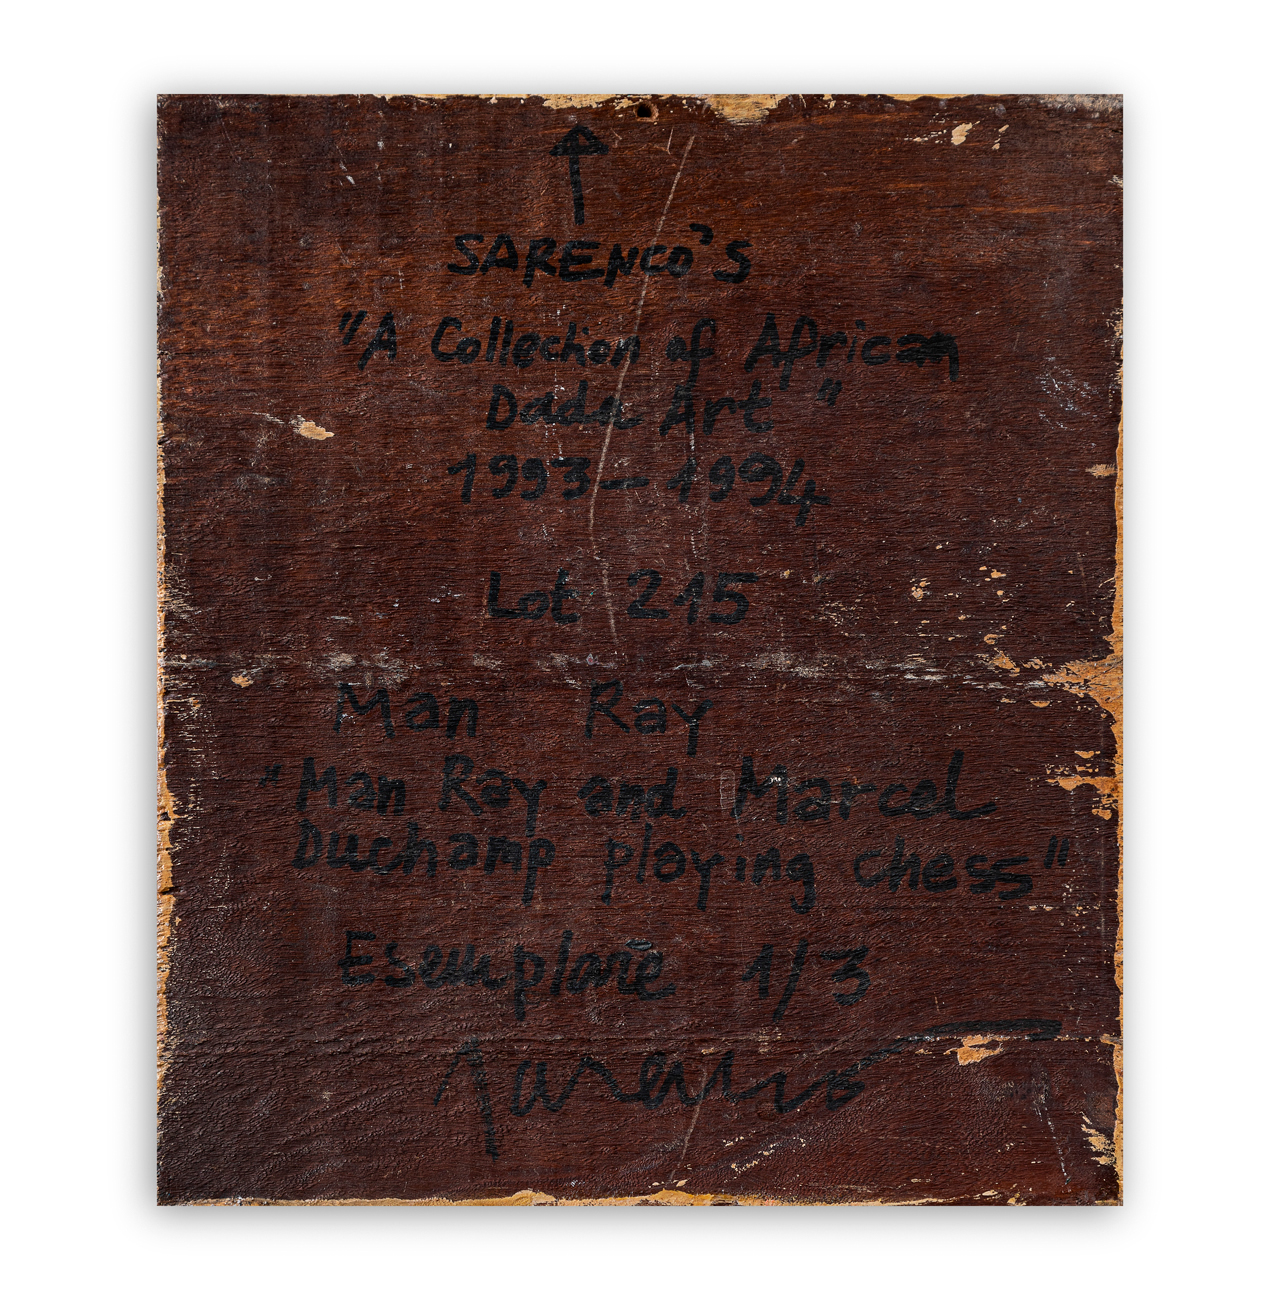 SARENCO'S
"A Collection of African
Dada Art"
1993-1994
Lot 215
Man Ray
"Man Ray and Marcel
Duchamp playing chess"
Esemplare 1/3
Sarenco